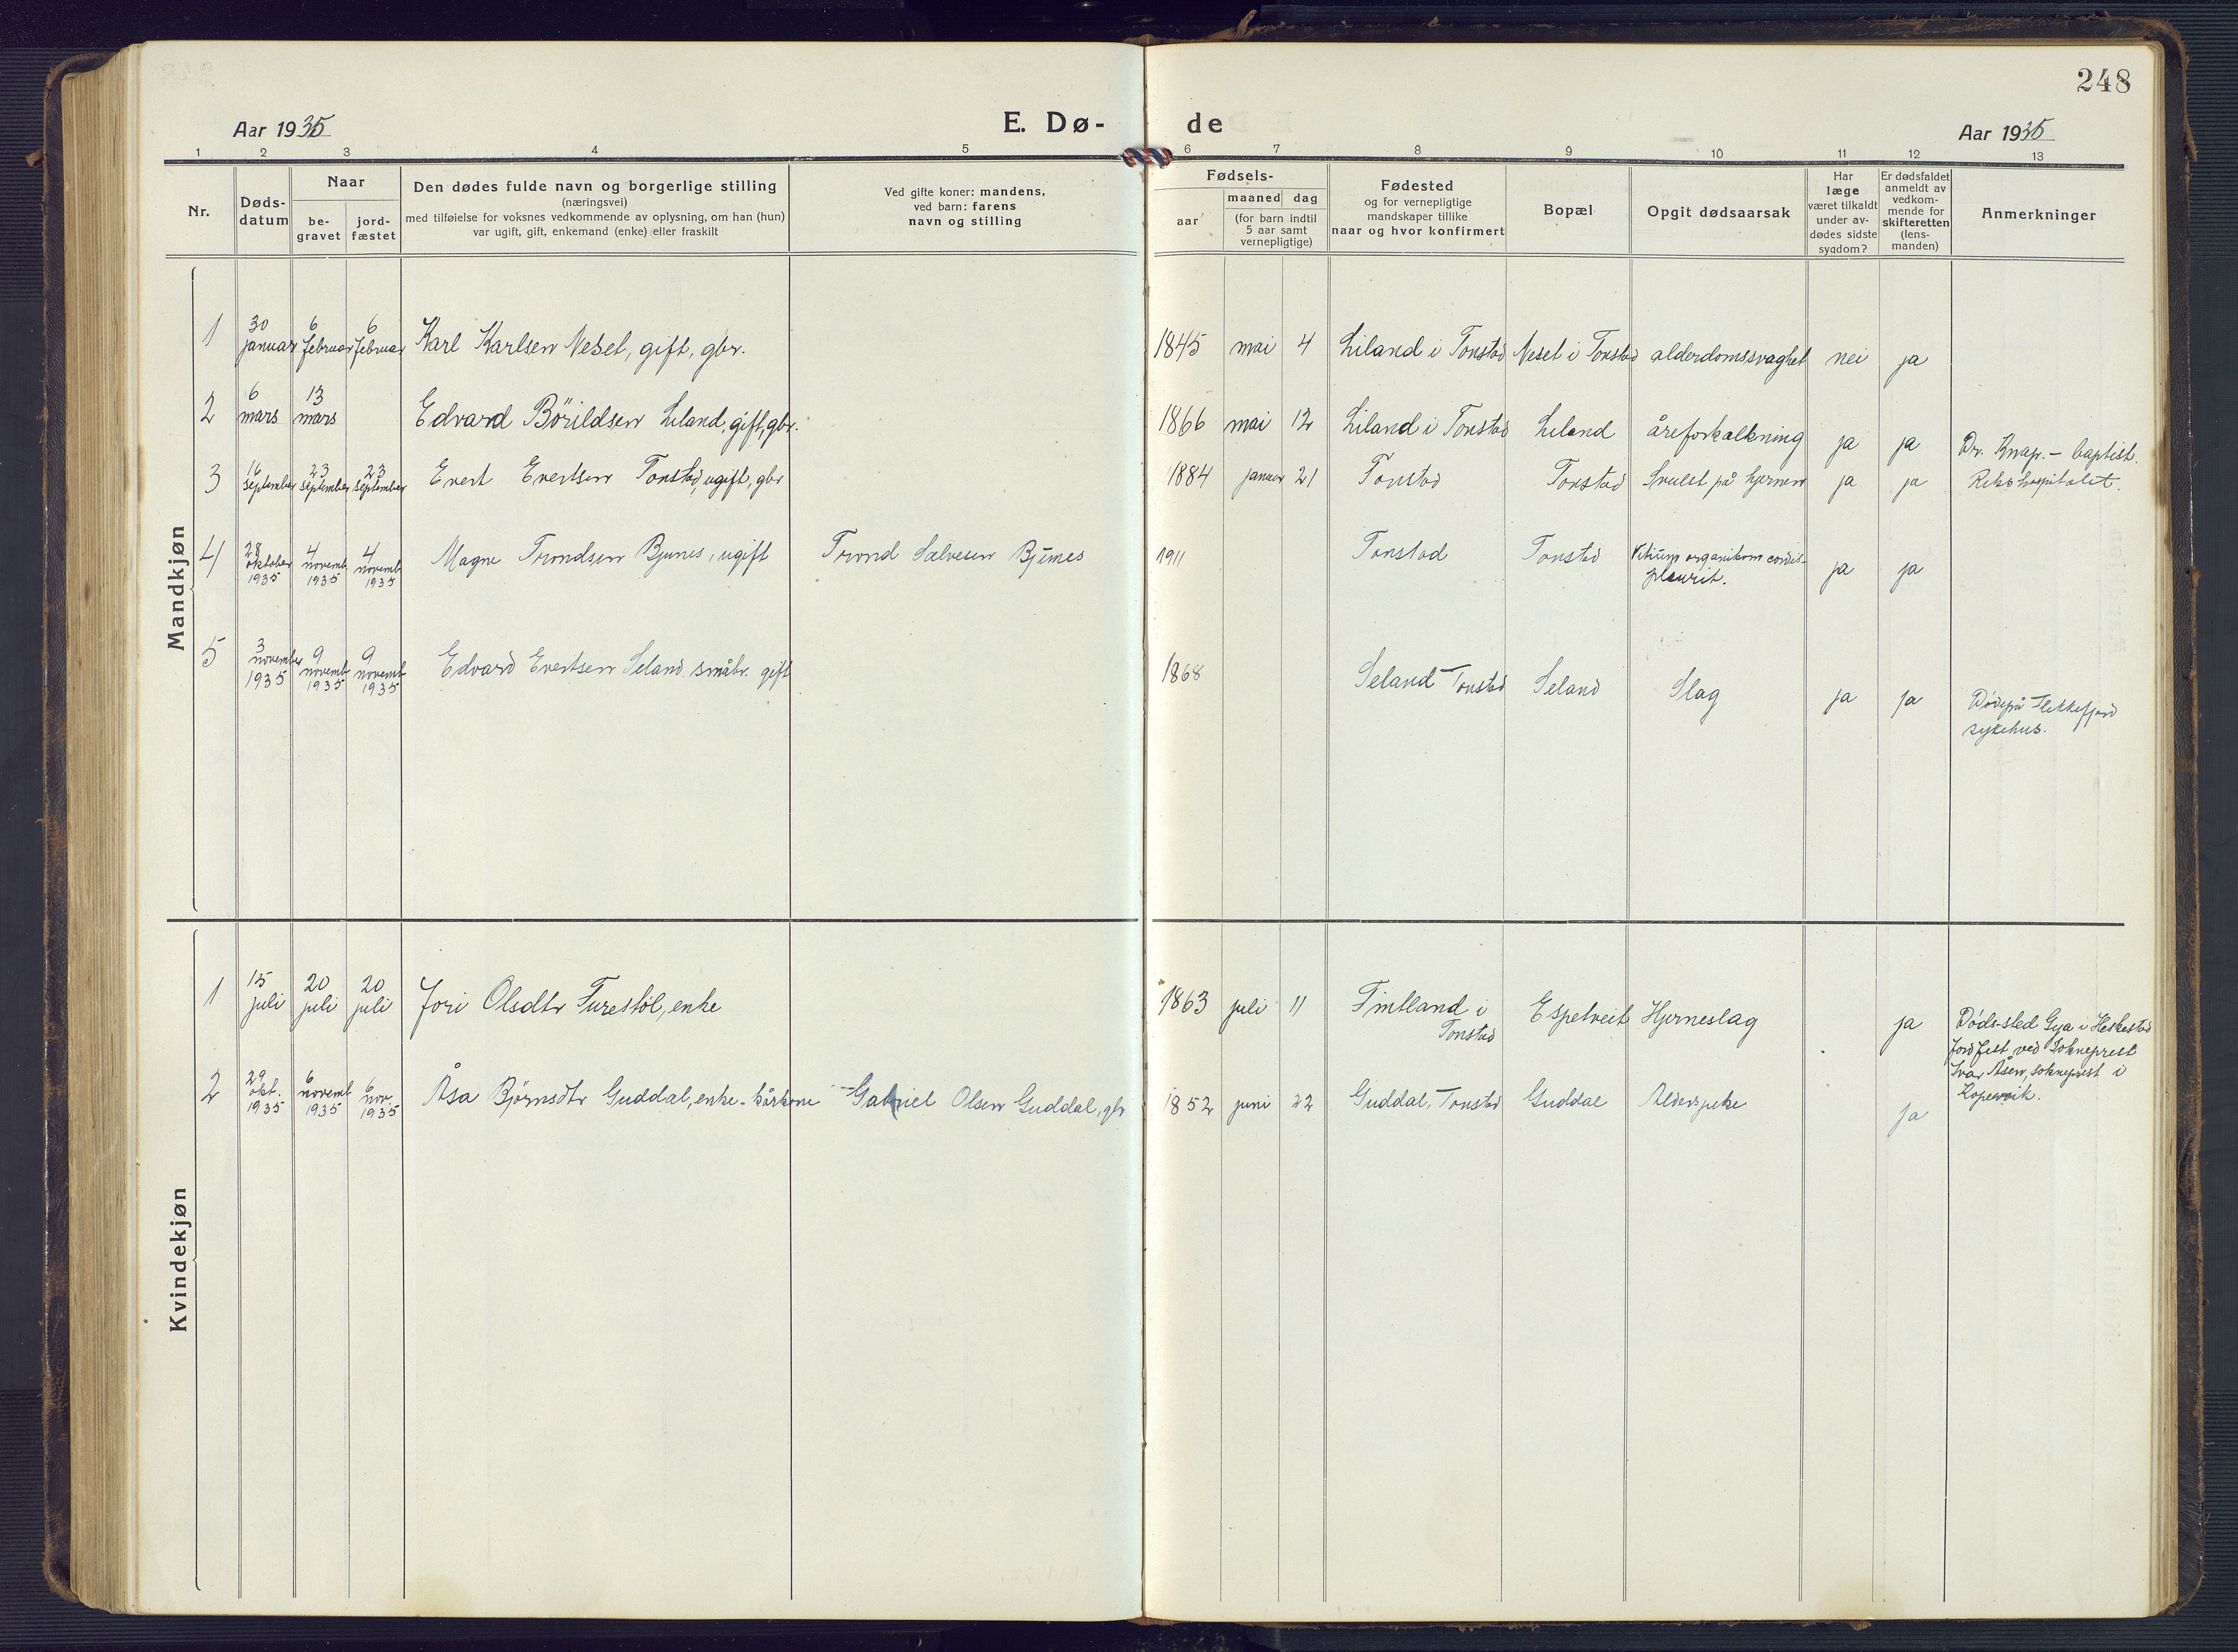 248
Aar 1935 E. Dø- de Aar 1935
1 2 3 4 5 6 7 8 9 10 11 12 13
Nr.
Døds-
datum
Naar
be-
gravet
jord-
fæstet
Den dødes fulde navn og borgerlige stilling
(næringsvei)
med tilføielse for voksnes vedkommende av oplysning, om han (hun)
var ugift, gift, enkemand (enke) eller fraskilt
Ved gifte koner: mandens,
ved barn: farens
navn og stilling
Fødsels-
aar
maaned dag
(for barn indtil
5 aar samt
vernepligtige)
Fødested
og for vernepligtige
mandskaper tillike
naar og hvor konfirmert
Bopæl
Opgit dødsaarsak
Har
læge
været tilkaldt
under av-
dødes sidste
sygdom?
Er dødsfaldet
anmeldt av
vedkom-
mende for
skifteretten
(lens-
manden)
Anmerkninger
Mandkjøn
1 30 januar 6 februar 6 februar Karl Karlsen Neset, gift, gbr. 1845 mai 4 Liland i Tonstad Neset i Tonstad alderdomssvaghet nei ja
2 6 mars 13 mars Edvard Börildsen Liland, gift, gbr. 1866 mai 12 Liland i Tonstad Liland åreforkalkning ja ja Dr. Knap. - baptist.
3 16 september 23 september 23 september Evert Evertsen Tonstad, ugift, gbr 1884 januar 21 Tonstad Tonstad Svulst på hjernen ja ja Rikshospitalet.
4 28 oktober 1935 4 novemb. 1935 4 novemb. 1935 Magne Trondsen Bjunes, ugift Trond Salvesen Bjunes 1911 Tonstad Tonstad Vitium organikom cordis-
pleurit. ja ja
5 3 november 1935 9 novemb. 1935 9 novemb. 1935 Edvard Evertsen Seland småbr. gift 1868 Seland Tonstad Seland Slag ja ja Døde på Flekkefjord
sykehus.
Kvindekjøn
1 15 juli 20 juli 20 juli Jori Olsdtr Furestöl, enke 1863 juli 11 Tintland i
Tonstad Espetveit Hjerneslag ja Döds-sted Gya i Heskestad
Jordfest ved Sokneprest
Ivar Åsen, sokneprest i
Kopervik.
2 29 okt. 1935 6 novemb 1935 6 nov. 1935 Åsa Bjørnsdtr Guddal, enke - kårkone Gabriel Olsen Guddal, gbr 1852 juni 22 Guddal, Tonstad Guddal ja